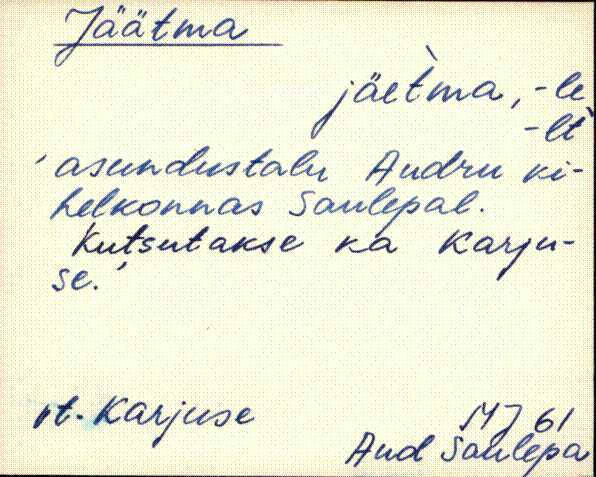 Jäätma
jäet̀ma, -le
-lt
'asundustalu Audru ki-
helkonnas Saulepal.
Kutsutakse ka Karju-
se.'
vt. Karjuse
MJ 61
Aud Saulepa